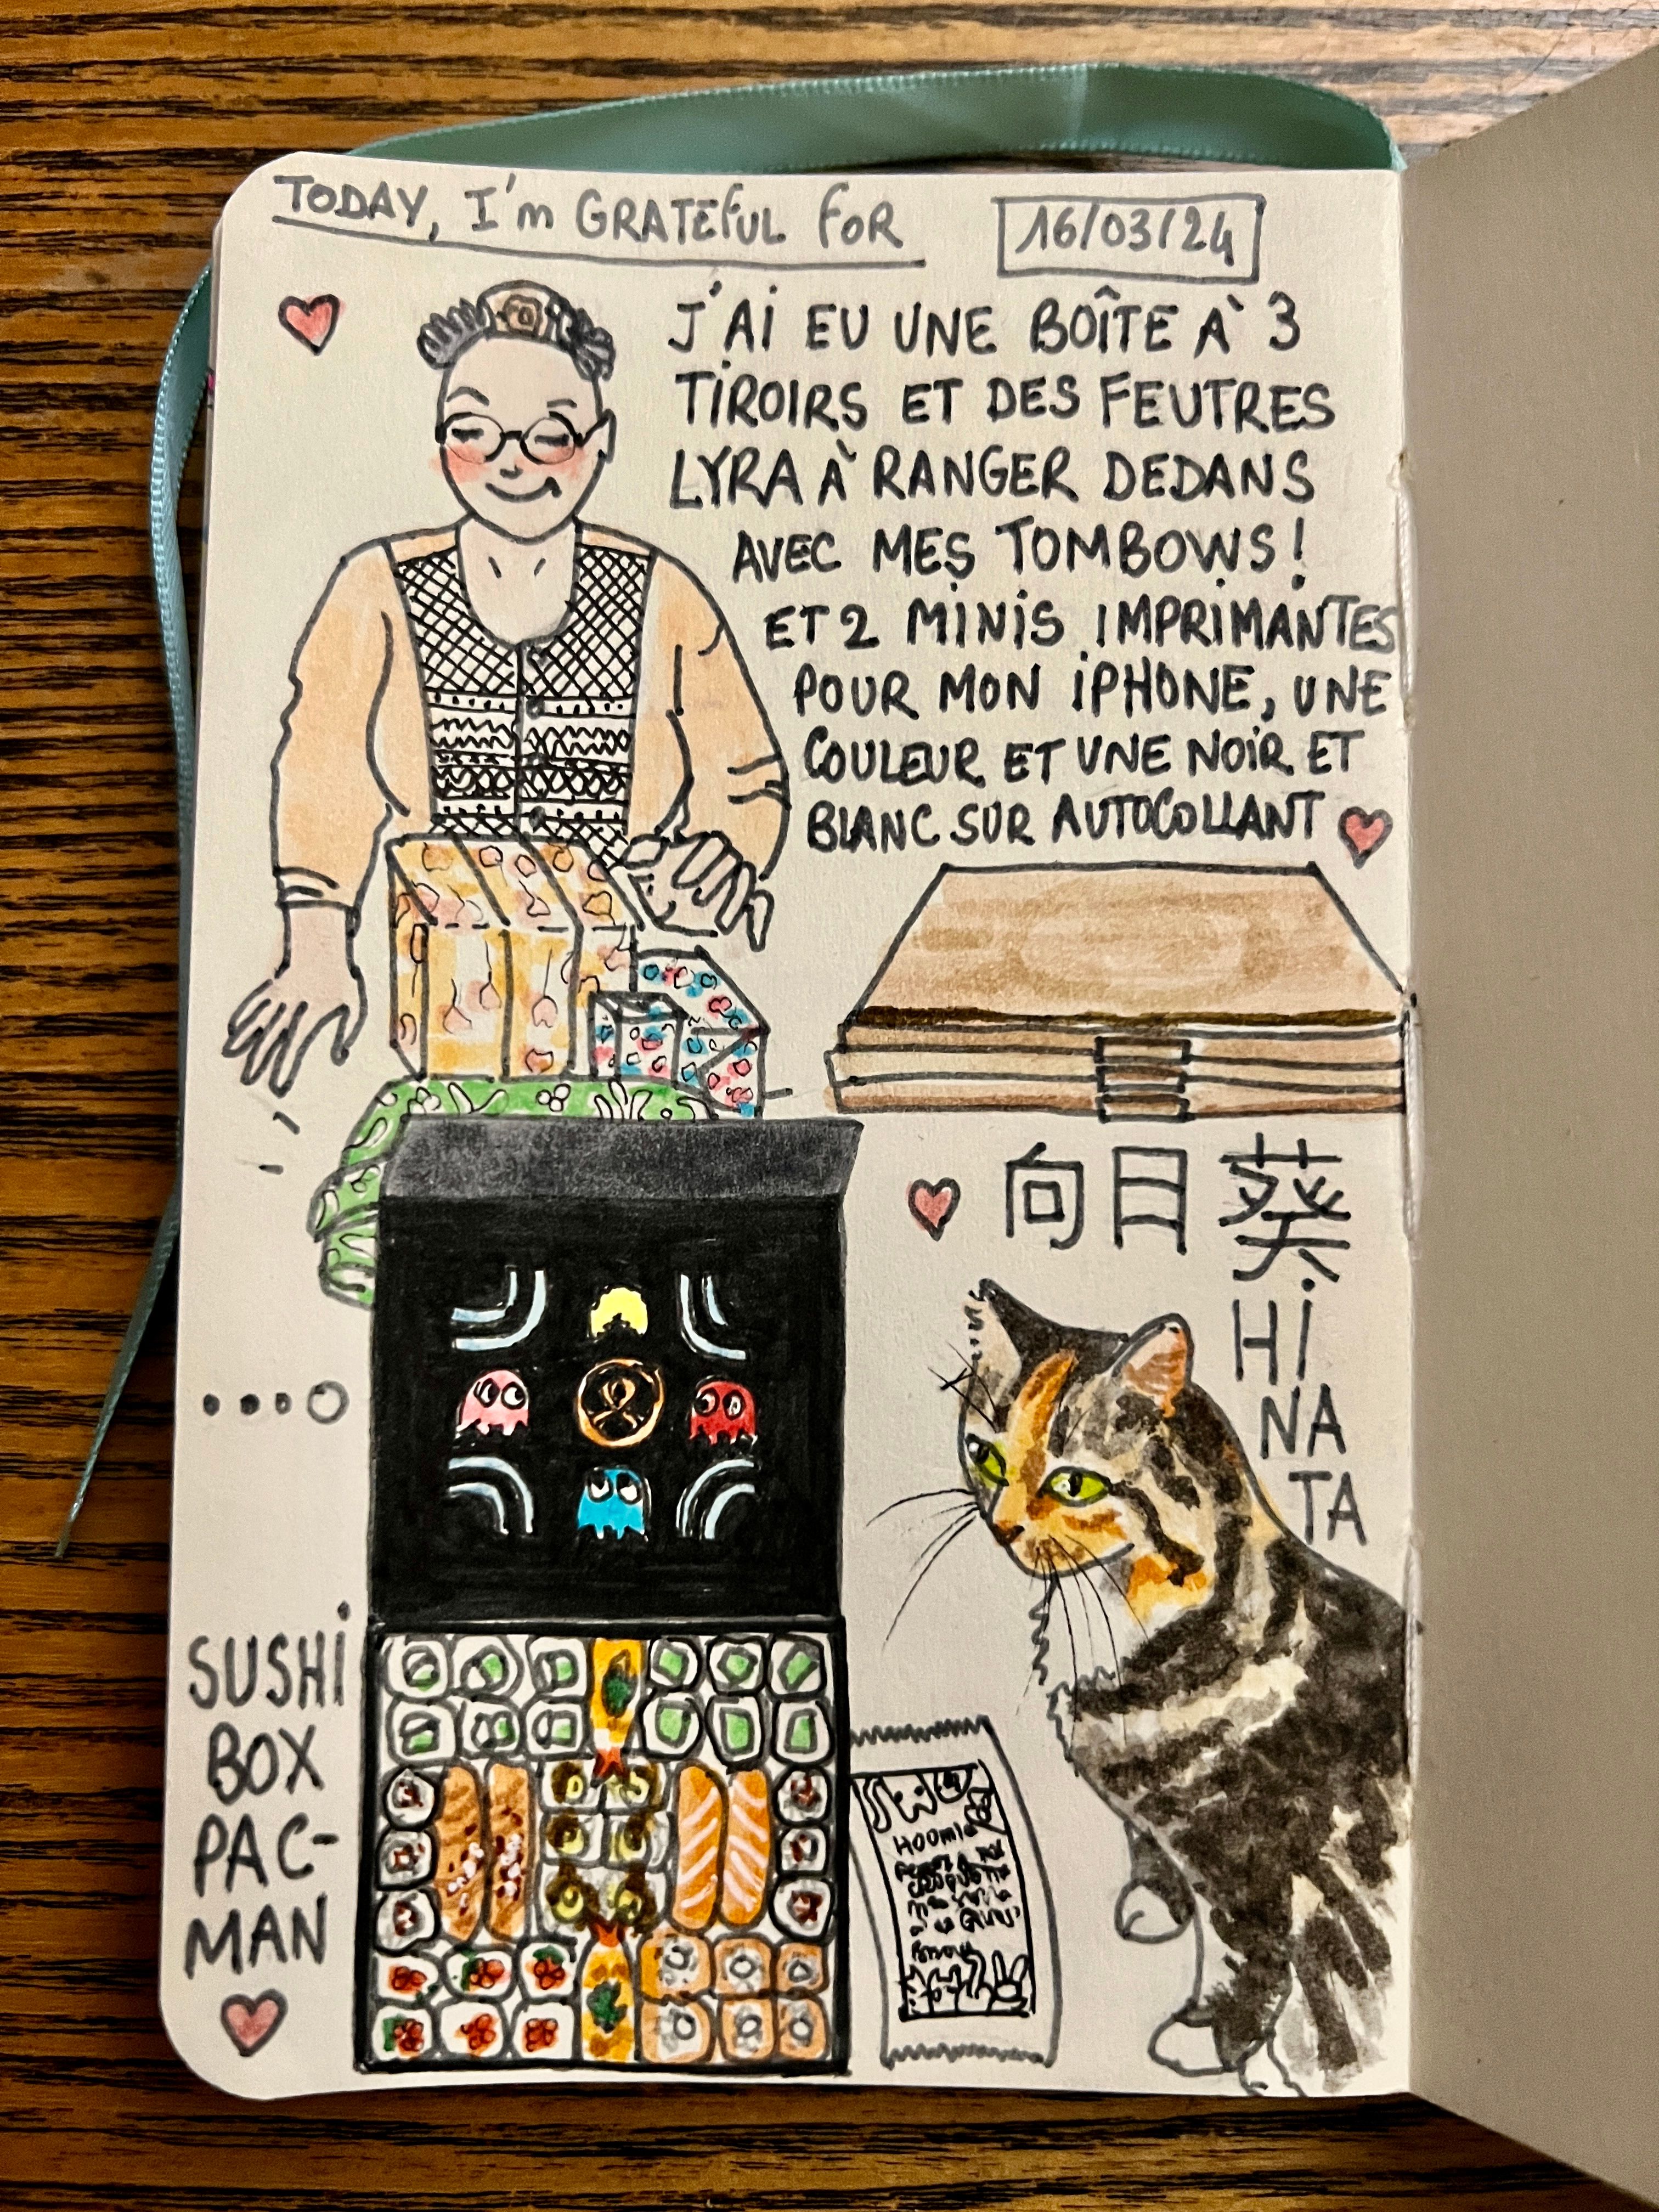 TODAY, I'm GRATEFUL FOR
16/03/24
J'AI EU UNE BOÎTE À 3
TIROIRS ET DES FEUTRES
LYRA À RANGER DEDANS
AVEC MES TOMBOWS!
ET 2 MINIS IMPRIMANTES
POUR MON IPHONE, UNE
COULEUR ET UNE NOIR ET
BLANC SUR AUTOCOLLANT
向日葵
HI
NA
TA
SUSHI
BOX
PAC-
MAN